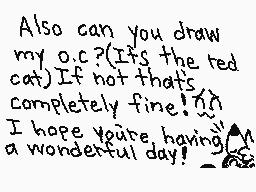 Also can you draw
my o.c?(It's the red
cat) If not that's
completely fine! ^^
I hope you're having
a wonderful day!